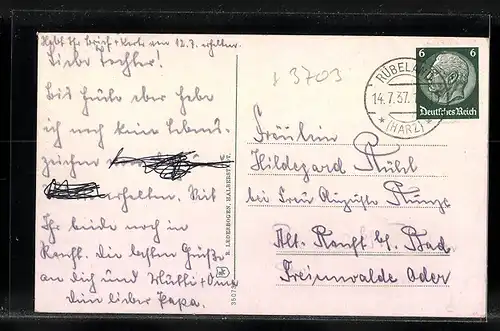 Habt Ihr Brief + Karte vom 12.7. erhalten.
Liebe Tochter!
Bis heute aber habe
ich noch kein Lebens-
zeichen
erhalten. Seit
Ihr beide noch in
Ranft. Die besten Grüße
an Dich und Mutti + Oma
Dein lieber Papa.
R. LEDERBOGEN, HALBERSTADT.
3703
RÜBELAND
14.7.37.
(HARZ)
6 6
Deutsches Reich
Fräulein
Hildegard Kühl
bei Frau Auguste Kunze
Alt. Ranft b/. Bad
Freienwalde Oder